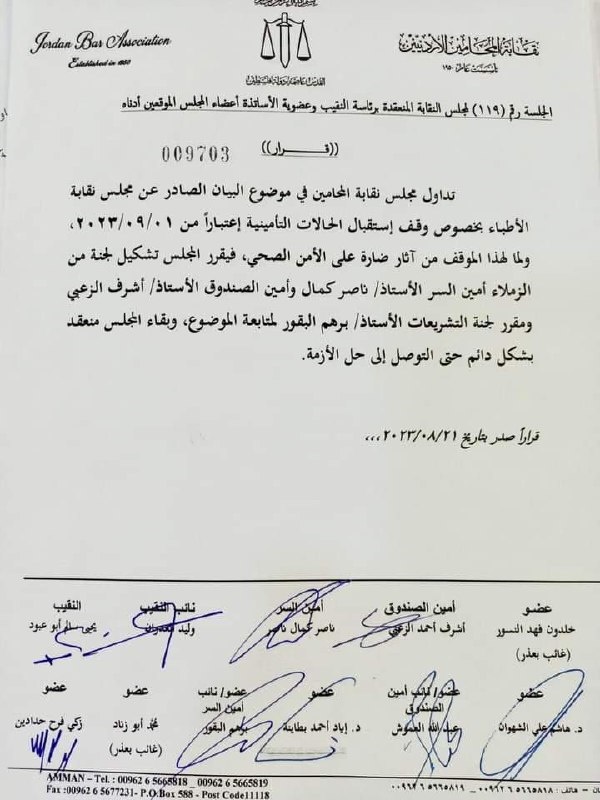 Jordan Bar Association
Established in 1950
نقابة المحامين الأردنيين
تأسست عام ١٩٥٠
الجلسة رقم (١١٩) لمجلس النقابة المنعقدة برئاسة النقيب وعضوية الأساتذة أعضاء المجلس الموقعين أدناه
((قـــرار))
009703
تداول مجلس نقابة المحامين في موضوع البيان الصادر عن مجلس نقابة
الأطباء بخصوص وقف إستقبال الحالات التأمينية إعتباراً من ٢٠٢٣/٠٩/٠١،
ولما لهذا الموقف من آثار ضارة على الأمن الصحي، فيقرر المجلس تشكيل لجنة من
الزملاء أمين السر الأستاذ/ ناصر كمال وأمين الصندوق الأستاذ/ أشرف الزعبي
ومقرر لجنة التشريعات الأستاذ/ برهم البقور لمتابعة الموضوع، وبقاء المجلس منعقد
بشكل دائم حتى التوصل إلى حل الأزمة.
قراراً صدر بتاريخ ٢٠٢٣/٠٨/٢١،،،
عضو أمين الصندوق أمين السر نائب النقيب النقيب
خلدون فهد النسور أشرف أحمد الزعبي ناصر كمال ناصر وليد يحيى سالم أبو عبود
(غائب بعذر)
عضو عضو/ نائب أمين عضو عضو/ نائب عضو عضو
الصندوق أمين السر
د. هاشم علي الشهوان عبد الله العموش د. إياد أحمد بطاينة برهم البقور محمد أبو زناد زكي فرح حدادين
(غائب بعذر)
AMMAN – Tel. : 00962 6 5665818 _ 00962 6 5665819
Fax :00962 6 5677231- P.O.Box 588 - Post Code11118
ان - هاتف : ٥٦٦٥٨١٨ ٦ ٠٠٩٦٢ _ ٥٦٦٥٨١٩ ٦ ٠٠٩٦٢